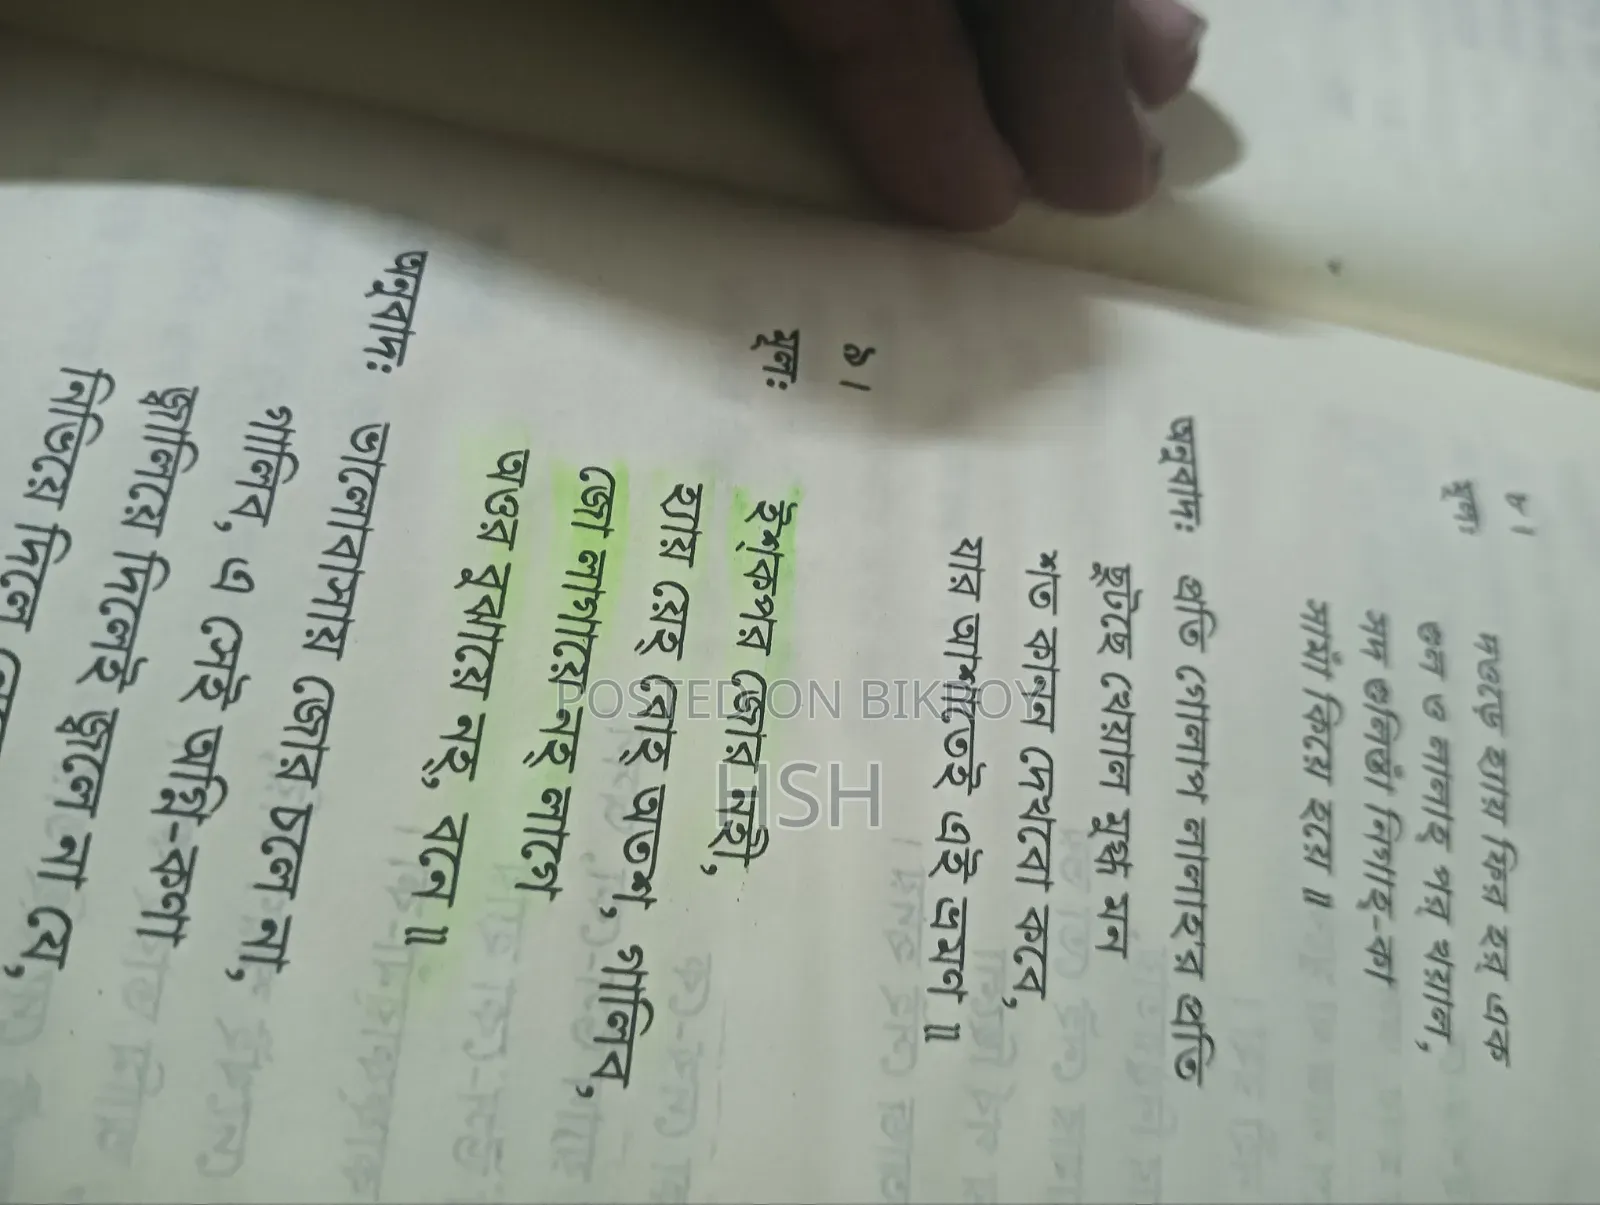 ৮।
মূলঃ
মওতেভ হায় ফির হয় এক
গুল ও লালাহ পর খয়াল,
সদ গুলিস্তাঁ নিগাহ-কা
সামাঁ কিয়ে হুয়ে ॥
অনুবাদঃ প্রতি গোলাপ লালাহ'র প্রতি
ছুটছে খেয়াল মুগ্ধ মন
শত কানন দেখবো কবে,
যার আশাতেই এই ভ্রমণ ॥
৯।
মূলঃ
ইশ্কপর জোর নহী,
হ্যায় য়েহ্ বোহ্ অতশ, গালিব,
জো লাগায়ে নহ্ লাগে
অওর বুঝায়ে নহ্, বনে ॥
অনুবাদঃ ভালোবাসায় জোর চলে না,
গালিব, এ সেই অগ্নি-কণা
জ্বালিয়ে দিলেই জ্বলে না যে,
নিভিয়ে দিলে
POSTED ON BIKROY
HSH